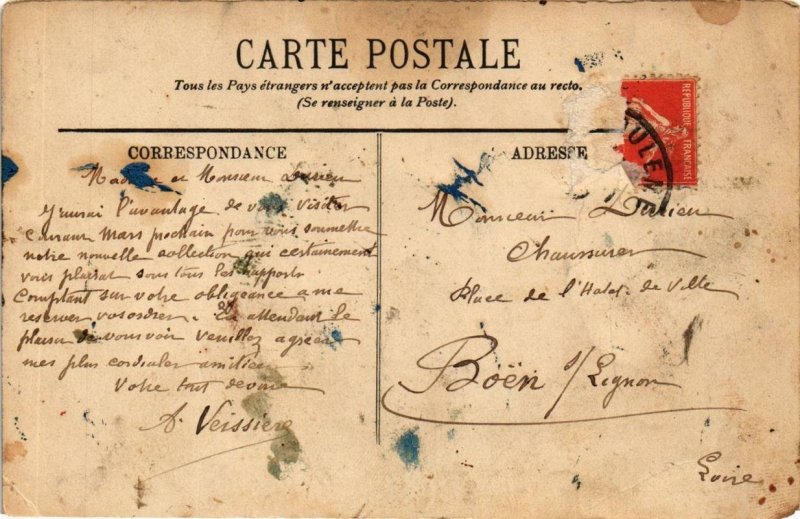 CARTE POSTALE
Tous les Pays étrangers n'acceptent pas la Correspondance au recto.
(Se renseigner à la Poste).
CORRESPONDANCE
et Monsieur Durieu
l'avantage de vous visiter
courant Mars prochain pour vous soumettre
notre nouvelle collection qui certainement
vous plaisat sous tous les rapports
Comptant sur votre obligeance a me
reserver vos ordres. En attendant le
plaisir de vous voir veuillez agréer
mes plus cordiales amitiés
Votre tout devoué
A. Veissiere
ADRESSE
Monsieur Durieu
Chaussures
Place de l'Hotel de Ville
Boën s/Lignon
Loire
REPUBLIQUE FRANÇAISE